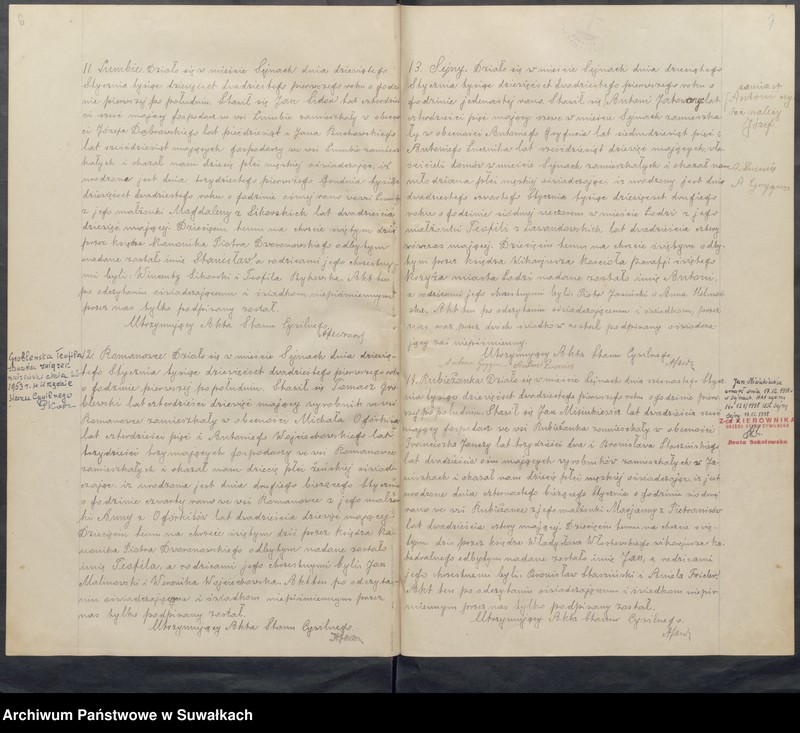 6
11. Lumbie. Działo się w mieście Sejnach dnia dziesiątego
Stycznia tysiąc dziewięćset dwudziestego pierwszego roku o godzi-
nie pierwszej po południu. Stawił się Jan lat czterdzieści
mający gospodarz we wsi Lumbie zamieszkały w obecnoś-
ci Józefa Dąbrowskiego lat pięćdziesiąt i Jana Buchowskiego
lat sześćdziesiąt mających gospodarzy we wsi Lumbie zamiesz-
kałych i okazał nam dziecię płci męskiej oświadczając, iż
urodzone jest dnia trzydziestego pierwszego Grudnia tysiąc
dziewięćset dwudziestego roku o godzinie ósmej rano we wsi Lumbie
z jego małżonki Magdaleny z Sikorskich lat dwadzieścia
dziewięć mającej. Dziecięciu temu na chrzcie świętym dziś
przez księdza Kanonika Piotra Dworanowskiego odbytym
nadane zostało imię Stanisław, a rodzicami jego chrzestny-
mi byli: Wincenty Sikorski i Teofila Akt ten
po odczytaniu oświadczającemu i świadkom niepiśmiennym
przez nas tylko podpisany został.
Utrzymujący Akta Stanu Cywilnego
Grablewska Teofila
zawarła związek
małżeński dnia
1953 r. w Urzędzie
Stanu Cywilnego
12. Romanowce. Działo się w mieście Sejnach dnia dziesią-
tego Stycznia tysiąc dziewięćset dwudziestego pierwszego roku
o godzinie pierwszej po południu. Stawił się Tomasz Gra-
blewski lat czterdzieści dziewięć mający wyrobnik we wsi
Romanowce zamieszkały w obecności Michała Ofórkisa
lat czterdzieści pięć i Antoniego Wojciechowskiego lat
trzydzieści trzy mających gospodarzy we wsi Romanowce
zamieszkałych i okazał nam dziecię płci żeńskiej oświad-
czając, iż urodzone jest dnia drugiego bieżącego Stycznia
o godzinie czwartej rano we wsi Romanowce z jego małżon-
ki Anny z Ofórkisów lat dwadzieścia dziewięć mającej.
Dziecięciu temu na chrzcie świętym dziś przez księdza Ka-
nonika Piotra Dworanowskiego odbytym nadane zostało
imię Teofila, a rodzicami jego chrzestnymi byli: Jan
Malinowski i Weronika Wojciechowska. Akt ten po odczyta-
niu oświadczającemu i świadkom niepiśmiennym przez
nas tylko podpisany został.
Utrzymujący Akta Stanu Cywilnego.
7
13. Sejny. Działo się w mieście Sejnach dnia dziesiątego
Stycznia tysiąc dziewięćset dwudziestego pierwszego roku o
godzinie jedenastej rano. Stawił się Antoni lat
czterdzieści pięć mający szewc w mieście Sejnach zamieszka-
ły w obecności Antoniego lat siedmdziesiąt pięć i
Antoniego lat sześćdziesiąt dziewięć mających, wła-
ścicieli domów w mieście Sejnach zamieszkałych i okazał nam
młodziana płci męskiej oświadczając, iż urodzony jest dnia
dwudziestego czwartego Stycznia tysiąc dziewięćset drugiego
roku o godzinie siódmej wieczorem w mieście Łodzi z jego
małżonki Teofili z lat dwadzieścia cztery
wówczas mającej. Dziecięciu temu na chrzcie świętym odby-
tym przez księdza Wikariusza Kościoła Parafji świętego
Krzyża miasta Łodzi nadane zostało imię Antoni,
a rodzicami jego chrzestnymi byli: Piotr Jasiński i Anna
Akt ten po odczytaniu oświadczającemu i świadkom, przez
nas oraz przez dwóch świadków został podpisany oświadcza-
jący zaś niepiśmienny.
Utrzymujący Akta Stanu Cywilnego.
zamiast
"Antoni" czy-
tać należy
Józef
14. Rubieżanka. Działo się w mieście Sejnach dnia szesnastego Stycz-
nia tysiąc dziewięćset dwudziestego pierwszego roku o godzinie pierw-
szej po południu. Stawił się Jan Misiukiewicz lat dwadzieścia
mający gospodarz we wsi Rubieżanka zamieszkały w obecności
Franciszka lat trzydzieści dwa i Bronisława Staszińskiego
lat dwadzieścia ośm mających wyrobników zamieszkałych w
i okazał nam dziecię płci męskiej oświadczając, iż jest
urodzone dnia czternastego bieżącego Stycznia o godzinie siódmej
rano we wsi Rubieżance z jego małżonki Marjanny z Pietranisów
lat dwadzieścia cztery mającej. Dziecięciu temu na chrzcie świę-
tym dziś przez księdza Władysława wikarjusza ka-
tedralnego odbytym nadane zostało imię Jan, a rodzicami
jego chrzestnemi byli: Bronisław Stasziński i Aniela
Akt ten po odczytaniu oświadczającemu i świadkom niepiś-
miennym przez nas tylko podpisany został.
Utrzymujący Akta Stanu Cywilnego.
Jan Misiukiewicz
zmarł dnia
w Sejnach Akt zgonu
Z-CA KIEROWNIKA
URZĘDU STANU CYWILNEGO
Beata Sokołowska
Archiwum Państwowe w Suwałkach